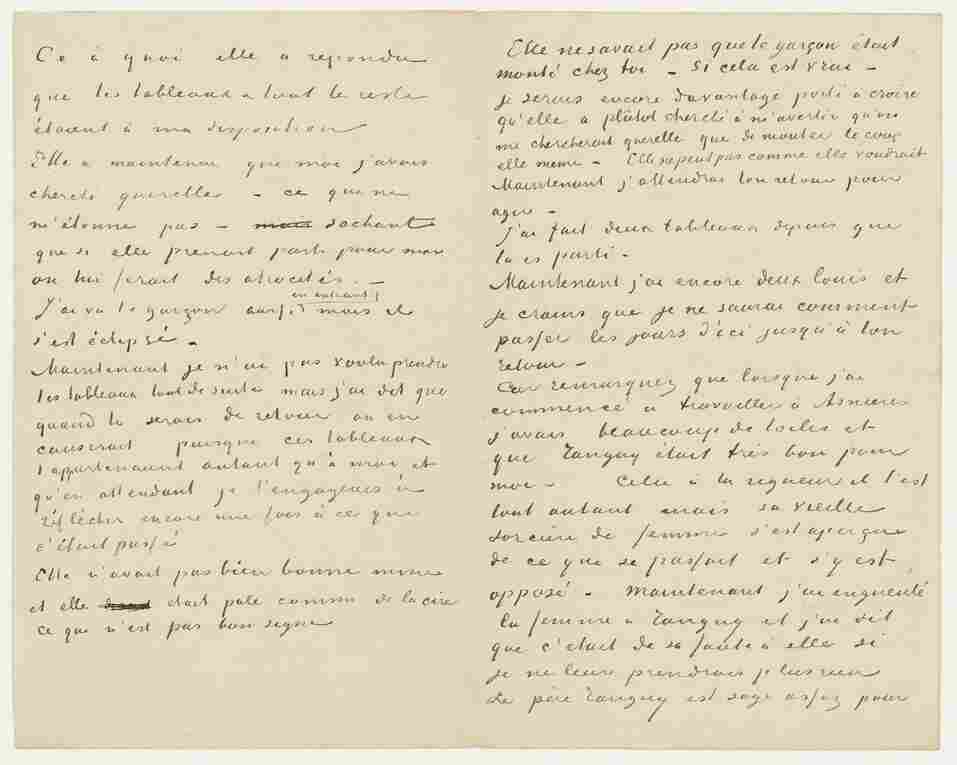 Ce à quoi elle a répondu
que les tableaux & tout le reste
étaient à ma disposition
Elle a maintenu que moi j'avais
cherché querelle – ce qui ne
m'étonne pas – mais sachant
que si elle prenait parti pour moi
on lui ferait des atrocités. –
en entrant
J'ai vu le garçon aussi mais il
s'est éclipsé –
Maintenant je n'ai pas voulu prendre
les tableaux tout de suite mais j'ai dit que
quand tu serais de retour on en
causerait puisque ces tableaux
t'appartenaient autant qu'à moi et
qu'en attendant je l'engageais à
réflechir encore une fois à ce qui
s'était passé
Elle n'avait pas bien bonne mine
et elle était pâle comme de la cire
ce qui n'est pas bon signe
Elle ne savait pas que le garçon était
monté chez toi – Si cela est vrai –
je serais encore davantage porté à croire
qu'elle a plûtot cherché à m'avertir qu'on
me chercherait querelle que de monter le coup
elle meme – Elle ne peut pas comme elle voudrait
Maintenant j'attendrai ton retour pour
agir –
j'ai fait deux tableaux depuis que
tu es parti –
Maintenant j'ai encore deux louis et
je crains que je ne saurai comment
passer les jours d'ici jusqu'à ton
retour –
Car remarquez que lorsque j'ai
commencé à travailler à Asnieres
j'avais beaucoup de toiles et
que Tanguy était très bon pour
moi – Celui à la rigueur il l'est
tout autant mais sa vieille
sorcière de femme s'est aperçue
de ce qui se passait et s'y est
opposé – Maintenant j'ai engueulé
la femme à Tanguy et j'ai dit
que c'était de sa faute à elle si
je ne leur prendrais plus rien
Le père Tanguy est sage assez pour